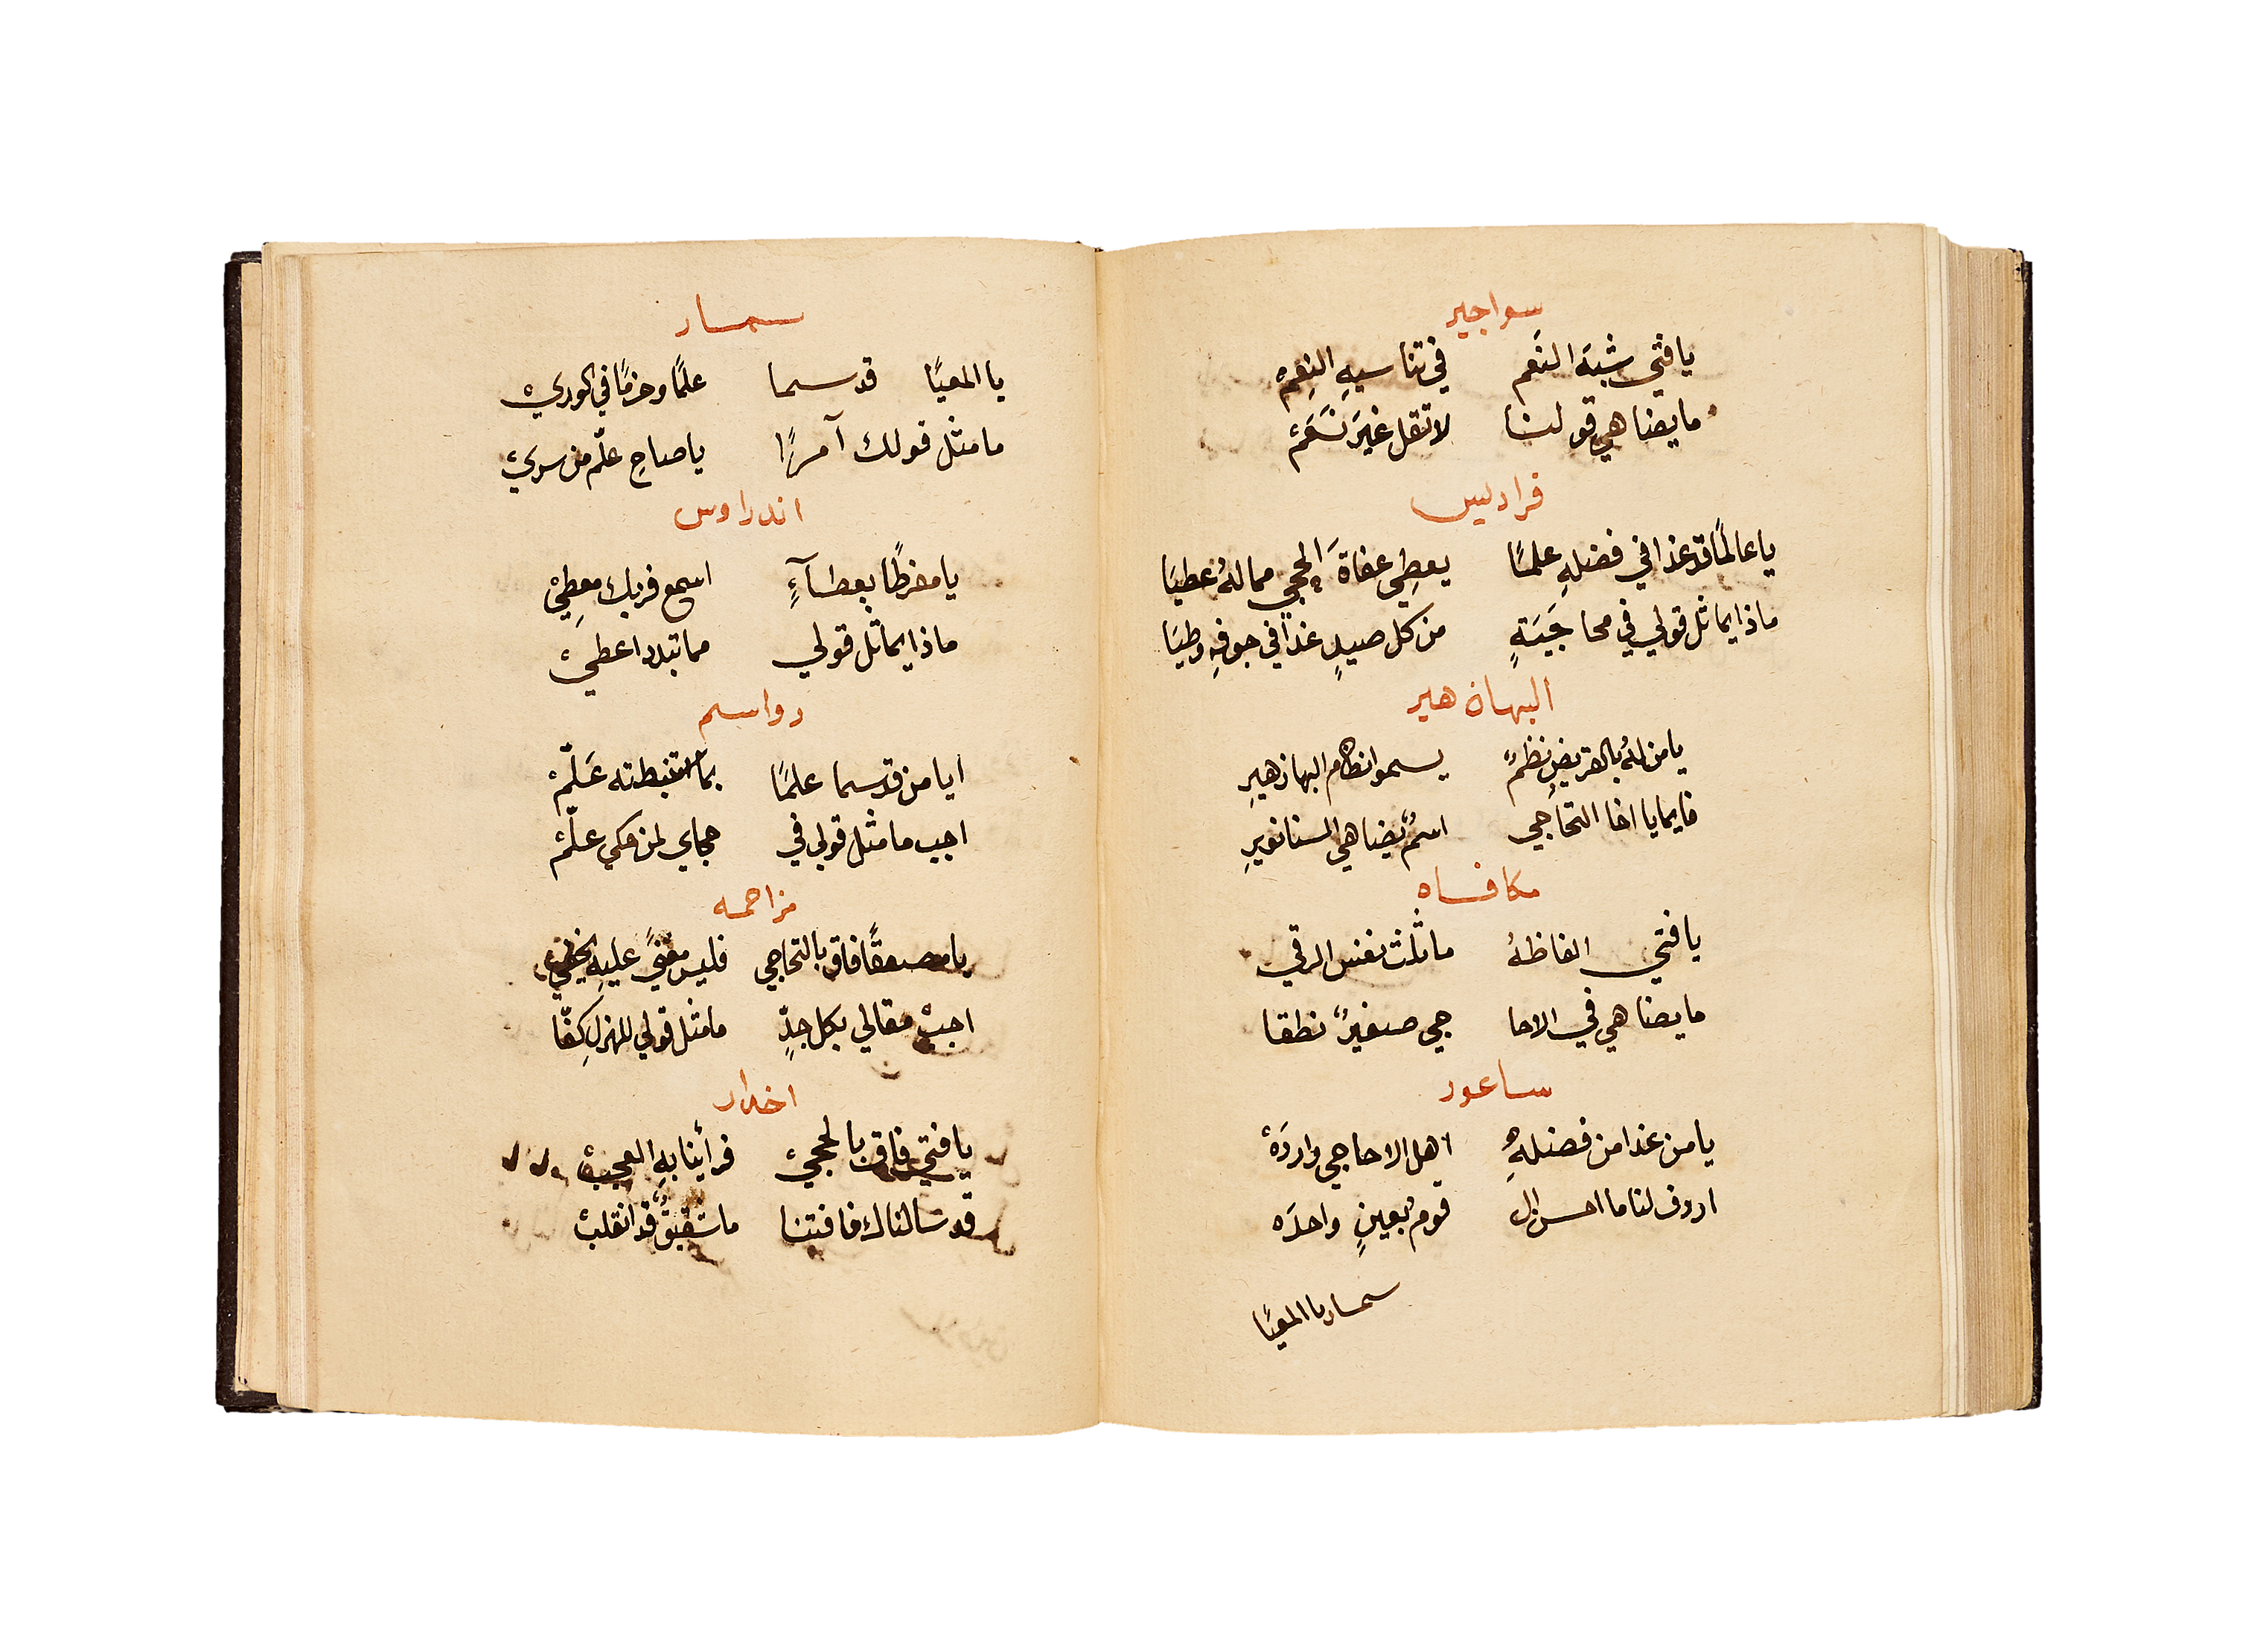 سواجير
يا فتي شبَهَ النَعم في تناسيهِ النِعمْ
ما يضاهي قولنا لا تقل غيَر نَعَمْ
فراديس
يا عالمًا قد غدا في فضلهِ علمًا يعطِي عفاةَ الحجي مما لهُ عطيَا
ماذا يماثل قولي في محاجَيَةٍ من كل صيدٍ غدا في جوفهِ وطيَا
البهاء زهير
يا من لهُ بالقريضِ نظمٌ يسموا نظام البها زهيرِ
فايما يا اخا التحاجي اسمٌ يضاهي السنا نويرِ
مكافاه
يا فتي الفاظهُ ما ثلث نفس الرقي
ما يضاهي في الاحا جي صفيرٌ نطقا
ساعور
يا من غدا من فضلهِ اهل الاحاجي واردَهْ
اردف لنا ما احسن ال قوم بعينٍ واحدَه
سمسار يا المعيًا
سمسار
يا المعيًا قد سما علمًا وحزمًا في الوريْ
ما مثل قولك آمرًا يا صاحِ علّم من سريْ
اندراوس
يا مفرطًا بعطآءٍ اسمع فربك معطِيْ
ماذا يماثل قولي مما تبدد اعطيْ
رواسم
ايا من قد سما علمًا بما استنبطته عَلّمْ
اجب ما مثل قولي في حجاي لمن مكي علّمْ
مزاحمه
يا مصعقًا فاق بالتحاجي فليس معنيً عليهِ يخفيْ
اجبْ مقالي بكل جدٍّ ما مثل قولي للهزلِ كِفّا
اخدار
يا فتي فاق بالحجيْ فرأينا بهِ العجبْ
قد سالناك فافتنا ما شقيقٌ قد انقلبْ